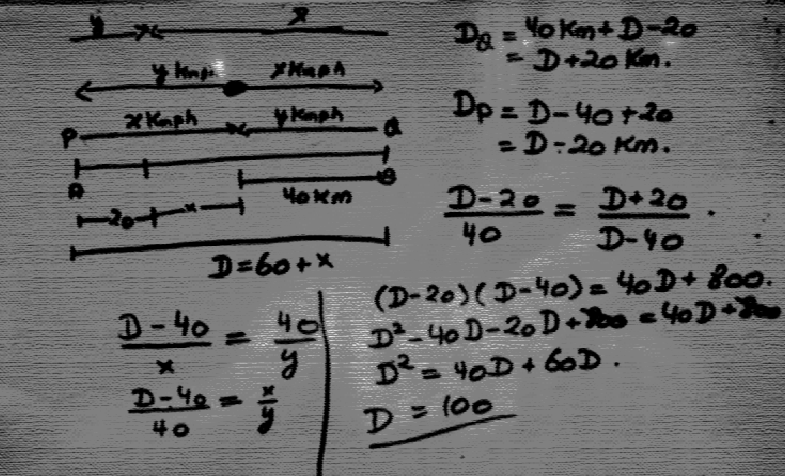 y x
y kmph x kmph
P x kmph y kmph Q
A B
40 km
20 x
D = 60 + x
D - 40 / x = 40 / y
D - 40 / 40 = x / y
D_Q = 40 km + D - 20
= D + 20 km.
D_P = D - 40 + 20
= D - 20 km.
D - 20 / 40 = D + 20 / D - 40 .
(D - 20)(D - 40) = 40D + 800.
D² - 40D - 20D + 800 = 40D + 800
D² = 40D + 60D .
D = 100